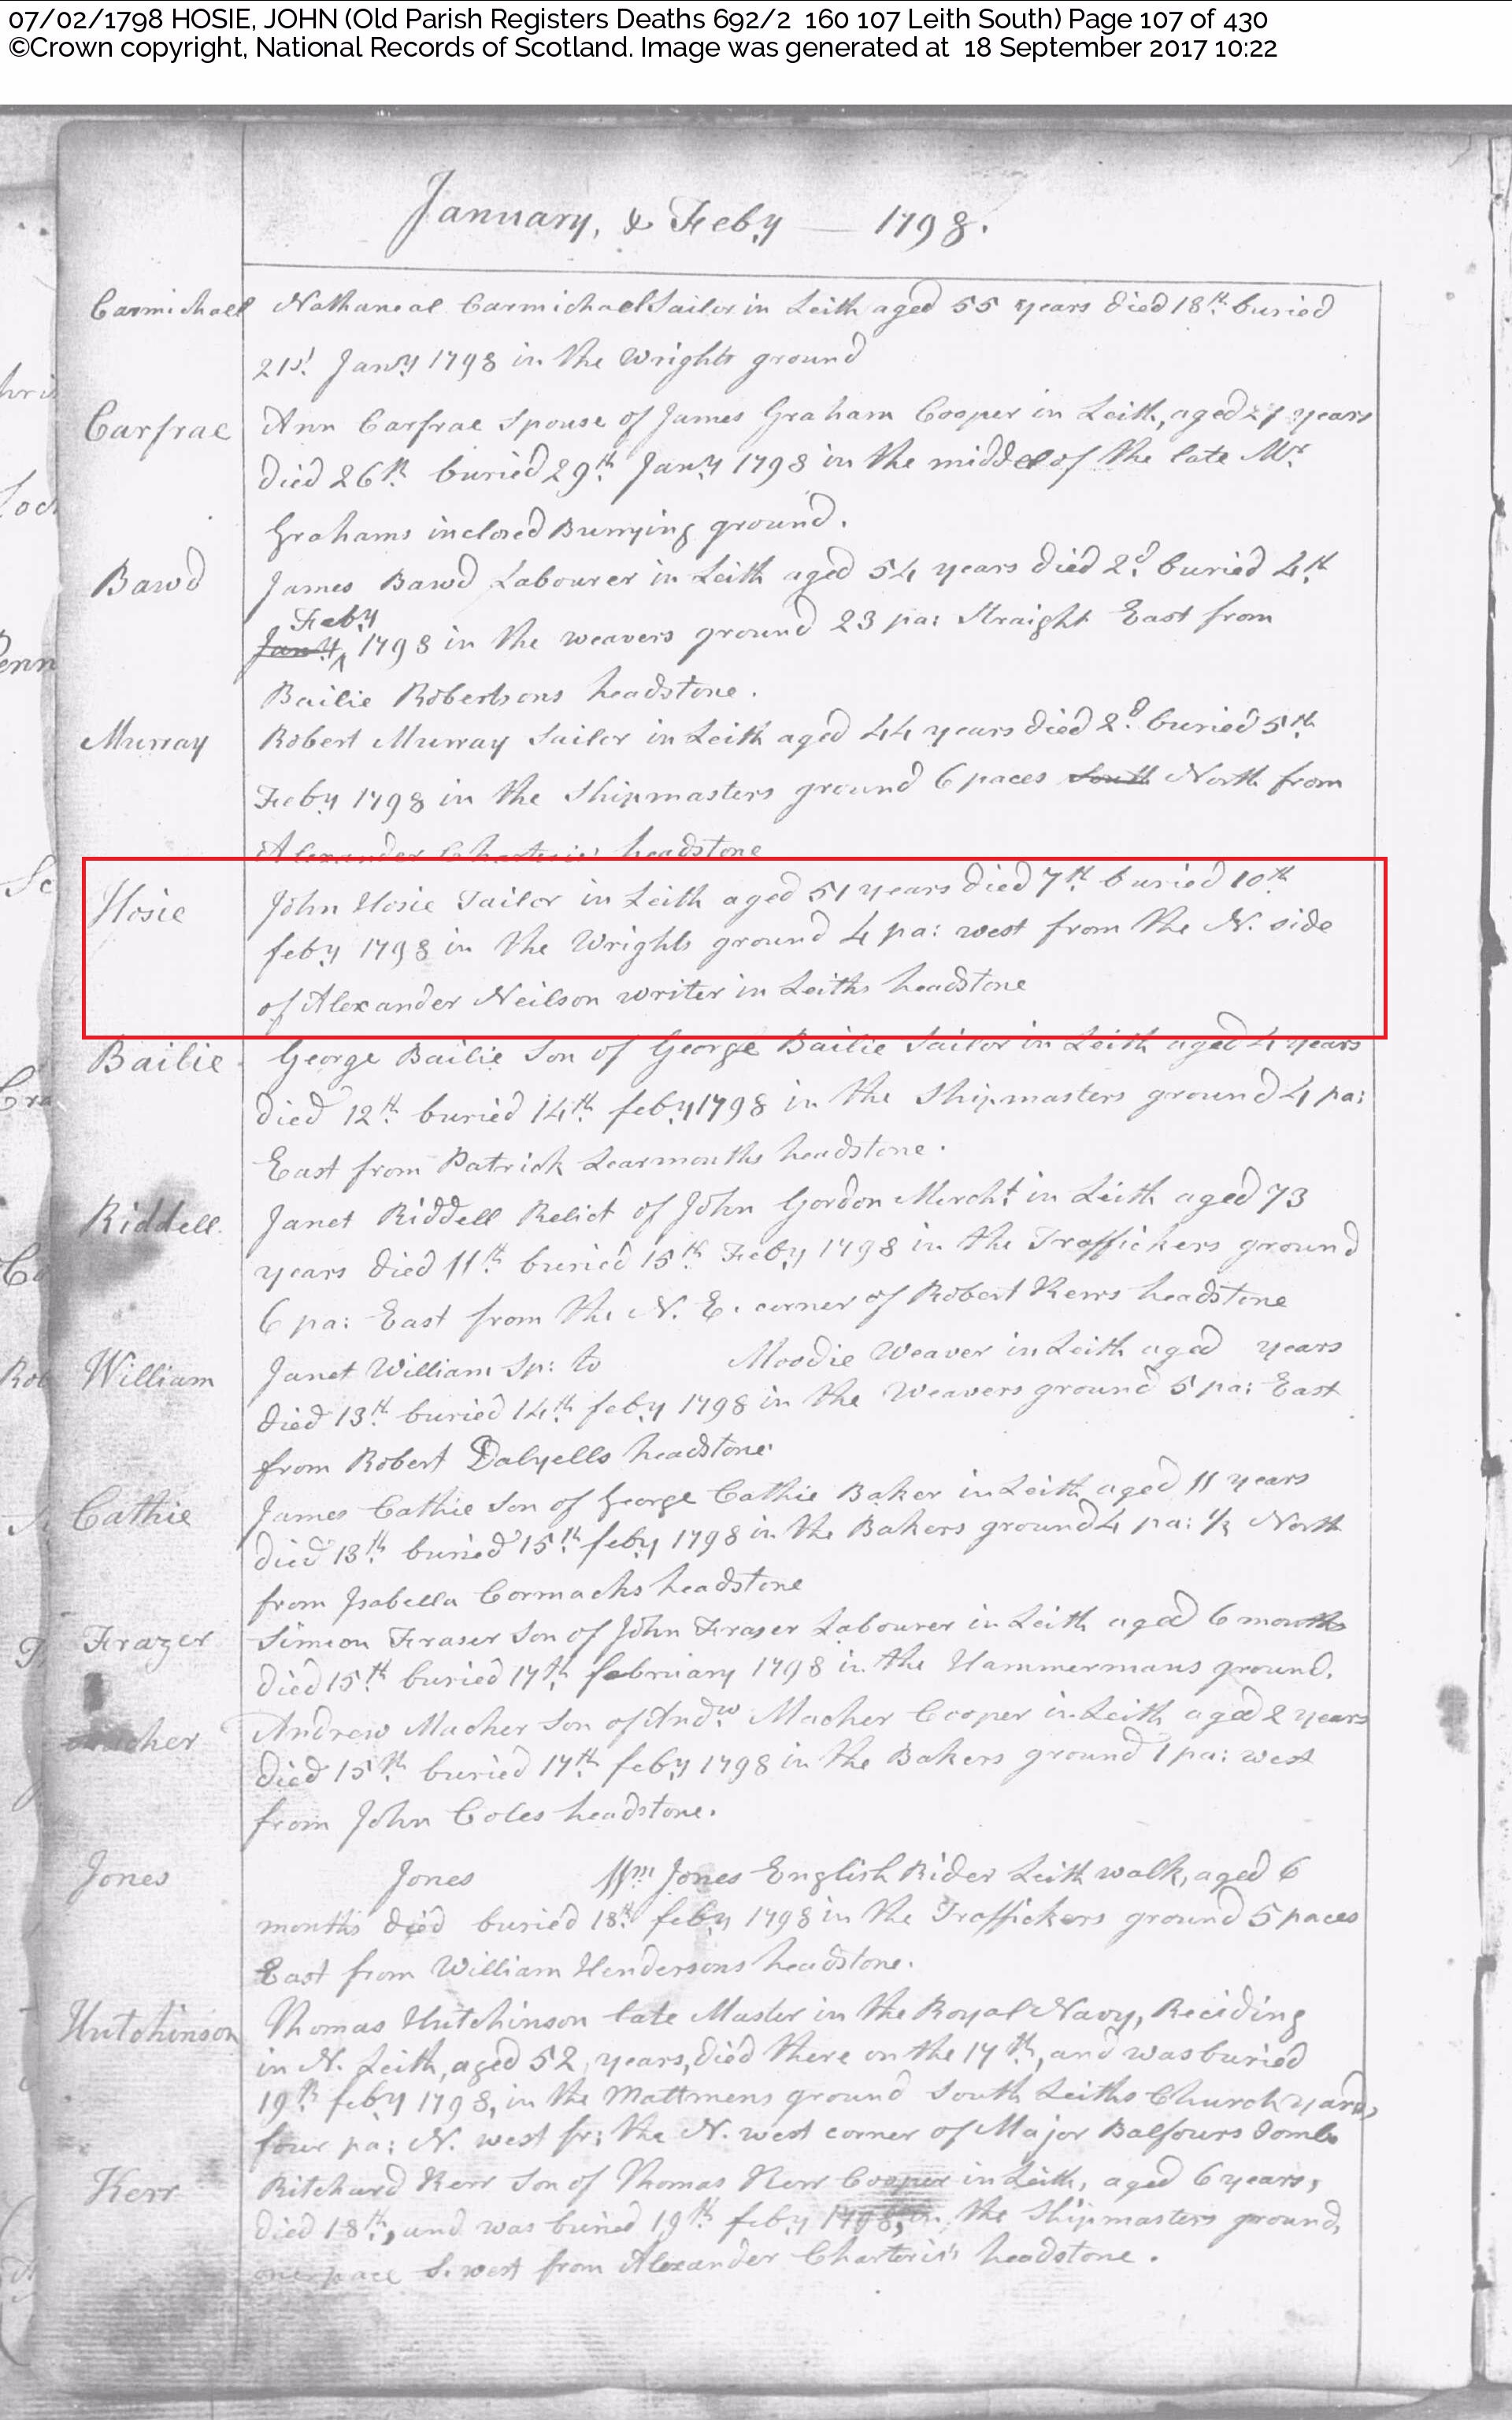 07/02/1798 HOSIE, JOHN (Old Parish Registers Deaths 692/2 160 107 Leith South) Page 107 of 430
©Crown copyright, National Records of Scotland. Image was generated at 18 September 2017 10:22
January, & Feby — 1798.
Carmichael Nathaneal Carmichael Sailor in Leith aged 55 years died 18th buried
21st Jany 1798 in the Wrights ground
Carfrae Ann Carfrae Spouse of James Graham Cooper in Leith, aged 27 years
died 26th buried 29th Jany 1798 in the middel of the late Mr
Grahams inclosed Burrying ground.
Bawd James Bawd Labourer in Leith aged 54 years died 2d buried 4th
Feby
Jany 1798 in the weavers ground 23 pa: Straight East from
Bailie Robertsons headstone.
Murray Robert Murray Sailor in Leith aged 44 years died 2d buried 5th
Feby 1798 in the Shipmasters ground 6 paces South North from
Alexander Charteris' headstone
Hosie John Hosie Tailor in Leith aged 51 years died 7th buried 10th
feby 1798 in the Wrights ground 4 pa: west from the N. side
of Alexander Neilson writer in Leiths headstone
Bailie George Bailie Son of George Bailie Sailor in Leith aged 4 years
died 12th buried 14th feby 1798 in the Shipmasters ground 4 pa:
East from Patrick Learmonths headstone.
Riddell. Janet Riddell Relict of John Gordon Mercht in Leith aged 73
years died 11th buried 15th Feby 1798 in the Traffickers ground
6 pa: East from the N. E. corner of Robert Kerrs headstone
William Janet William Sp: to Moodie Weaver in Leith aged years
died 13th buried 14th feby 1798 in the Weavers ground 5 pa: East
from Robert Dalyells headstone
Cathie James Cathie Son of George Cathie Baker in Leith aged 11 years
died 13th buried 15th feby 1798 in the Bakers ground 4 pa: ½ North
from Isabella Cormacks headstone
Frazer Simeon Fraser Son of John Fraser Labourer in Leith aged 6 months
died 15th buried 17th february 1798 in the Hammermans ground.
Macher Andrew Macher Son of Andw Macher Cooper in Leith aged 2 years
died 15th buried 17th feby 1798 in the Bakers ground 1 pa: west
from John Coles headstone.
Jones Jones Wm Jones English Rider Leith walk, aged 6
months died buried 18th feby 1798 in the Traffickers ground 5 paces
East from William Hendersons headstone.
Hutchinson Thomas Hutchinson late Master in the Royal Navy, Reciding
in N. Leith, aged 52 years, died there on the 17th, and was buried
19th feby 1798, in the Mattmens ground South Leiths Church yard,
four pa: N. west fr: the N. west corner of Major Balfours tomb
Kerr Ritchard Kerr Son of Thomas Kerr Cooper in Leith, aged 6 years,
died 18th, and was buried 19th feby 1798, in the Shipmasters ground,
one pace S. west from Alexander Charteris's headstone.